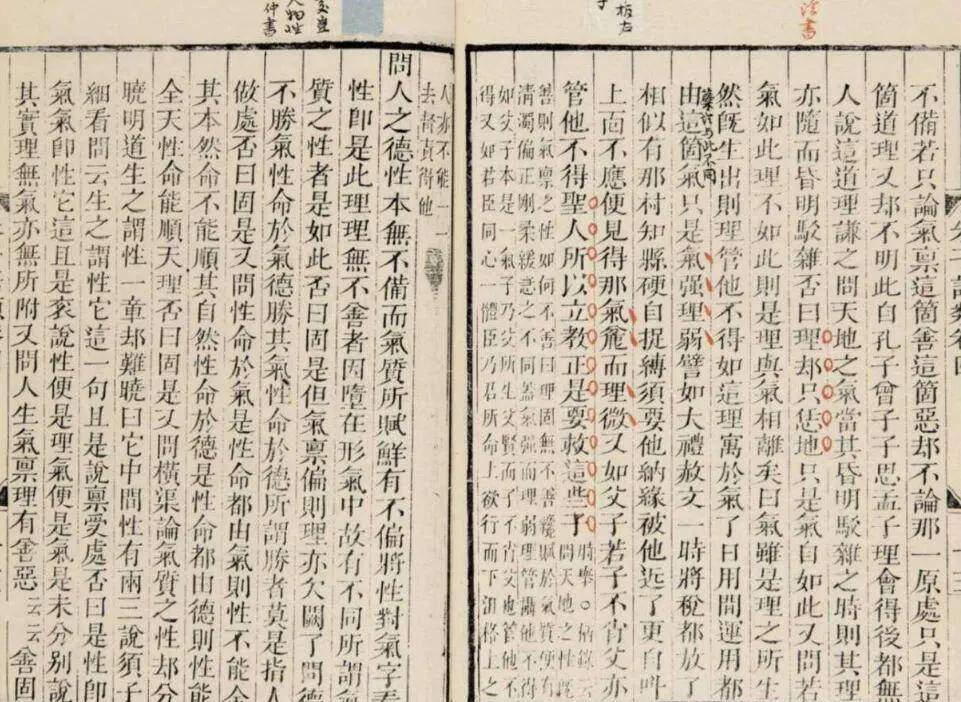 不備若只論氣稟這箇善這箇惡却不論那一原處只是這
箇道理又却不明此自孔子曾子子思孟子理會得後都無
人說這道理謙之問天地之氣當其昏明駁雜之時則其理
亦隨而昏明駁雜否曰理却只恁地只是氣自如此又問若
氣如此理不如此則是理與氣相離矣曰氣雖是理之所生
然旣生出則理管他不得如這理寓於氣了日用間運用都
由這箇氣只是氣强理弱譬如大禮赦文一時將稅都放了
相似有那村知縣硬自捉縛須要他納緣被他近了更自叫
上面不應便見得那氣麄而理微又如父子若子不肖父亦
管他不得聖人所以立教正是要救這些子
問天地之性旣
善則氣稟之性如何不善曰理固無不善纔賦於氣質便有
清濁偏正剛柔緩急之不同蓋氣强而理弱理管攝他不得
如父子本是一氣子乃父所生父賢而子不肖父也管他不
得又如君臣同心一體臣乃君所命上欲行而下沮格上之
人亦不能一一
去督責得他
問人之德性本無不備而氣質所賦鮮有不偏將性對氣字看
性卽是此理理無不善者因墮在形氣中故有不同所謂氣
質之性者是如此否曰固是但氣稟偏則理亦欠闕了問德
不勝氣性命於氣德勝其氣性命於德所謂勝者莫是指人
做處否曰固是又問性命於氣是性命都由氣則性不能全
其本然命不能順其自然性命於德是性命都由德則性能
全天性命能順天理否曰固是又問橫渠論氣質之性却分
曉明道生之謂性一章却難曉曰它中間性有兩三說須子
細看問云生之謂性它這一句且是說稟受處否曰是性卽
氣氣卽性它這且是衮說性便是理氣便是氣是未分別說
其實理無氣亦無所附又問人生氣稟理有善惡云云善固